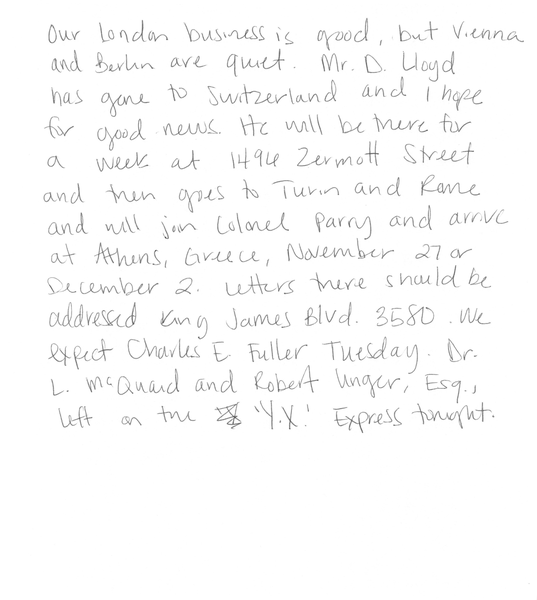 Our London business is good, but Vienna
and Berlin are quiet. Mr. D. Lloyd
has gone to Switzerland and I hope
for good news. He will be there for
a week at 1496 Zermott Street
and then goes to Turin and Rome
and will join Colonel Parry and arrive
at Athens, Greece, November 27 or
December 2. Letters there should be
addressed King James Blvd. 3580. We
expect Charles E. Fuller Tuesday. Dr.
L. McQuaid and Robert Unger, Esq.,
left on the 'Y.X.' Express tonight.